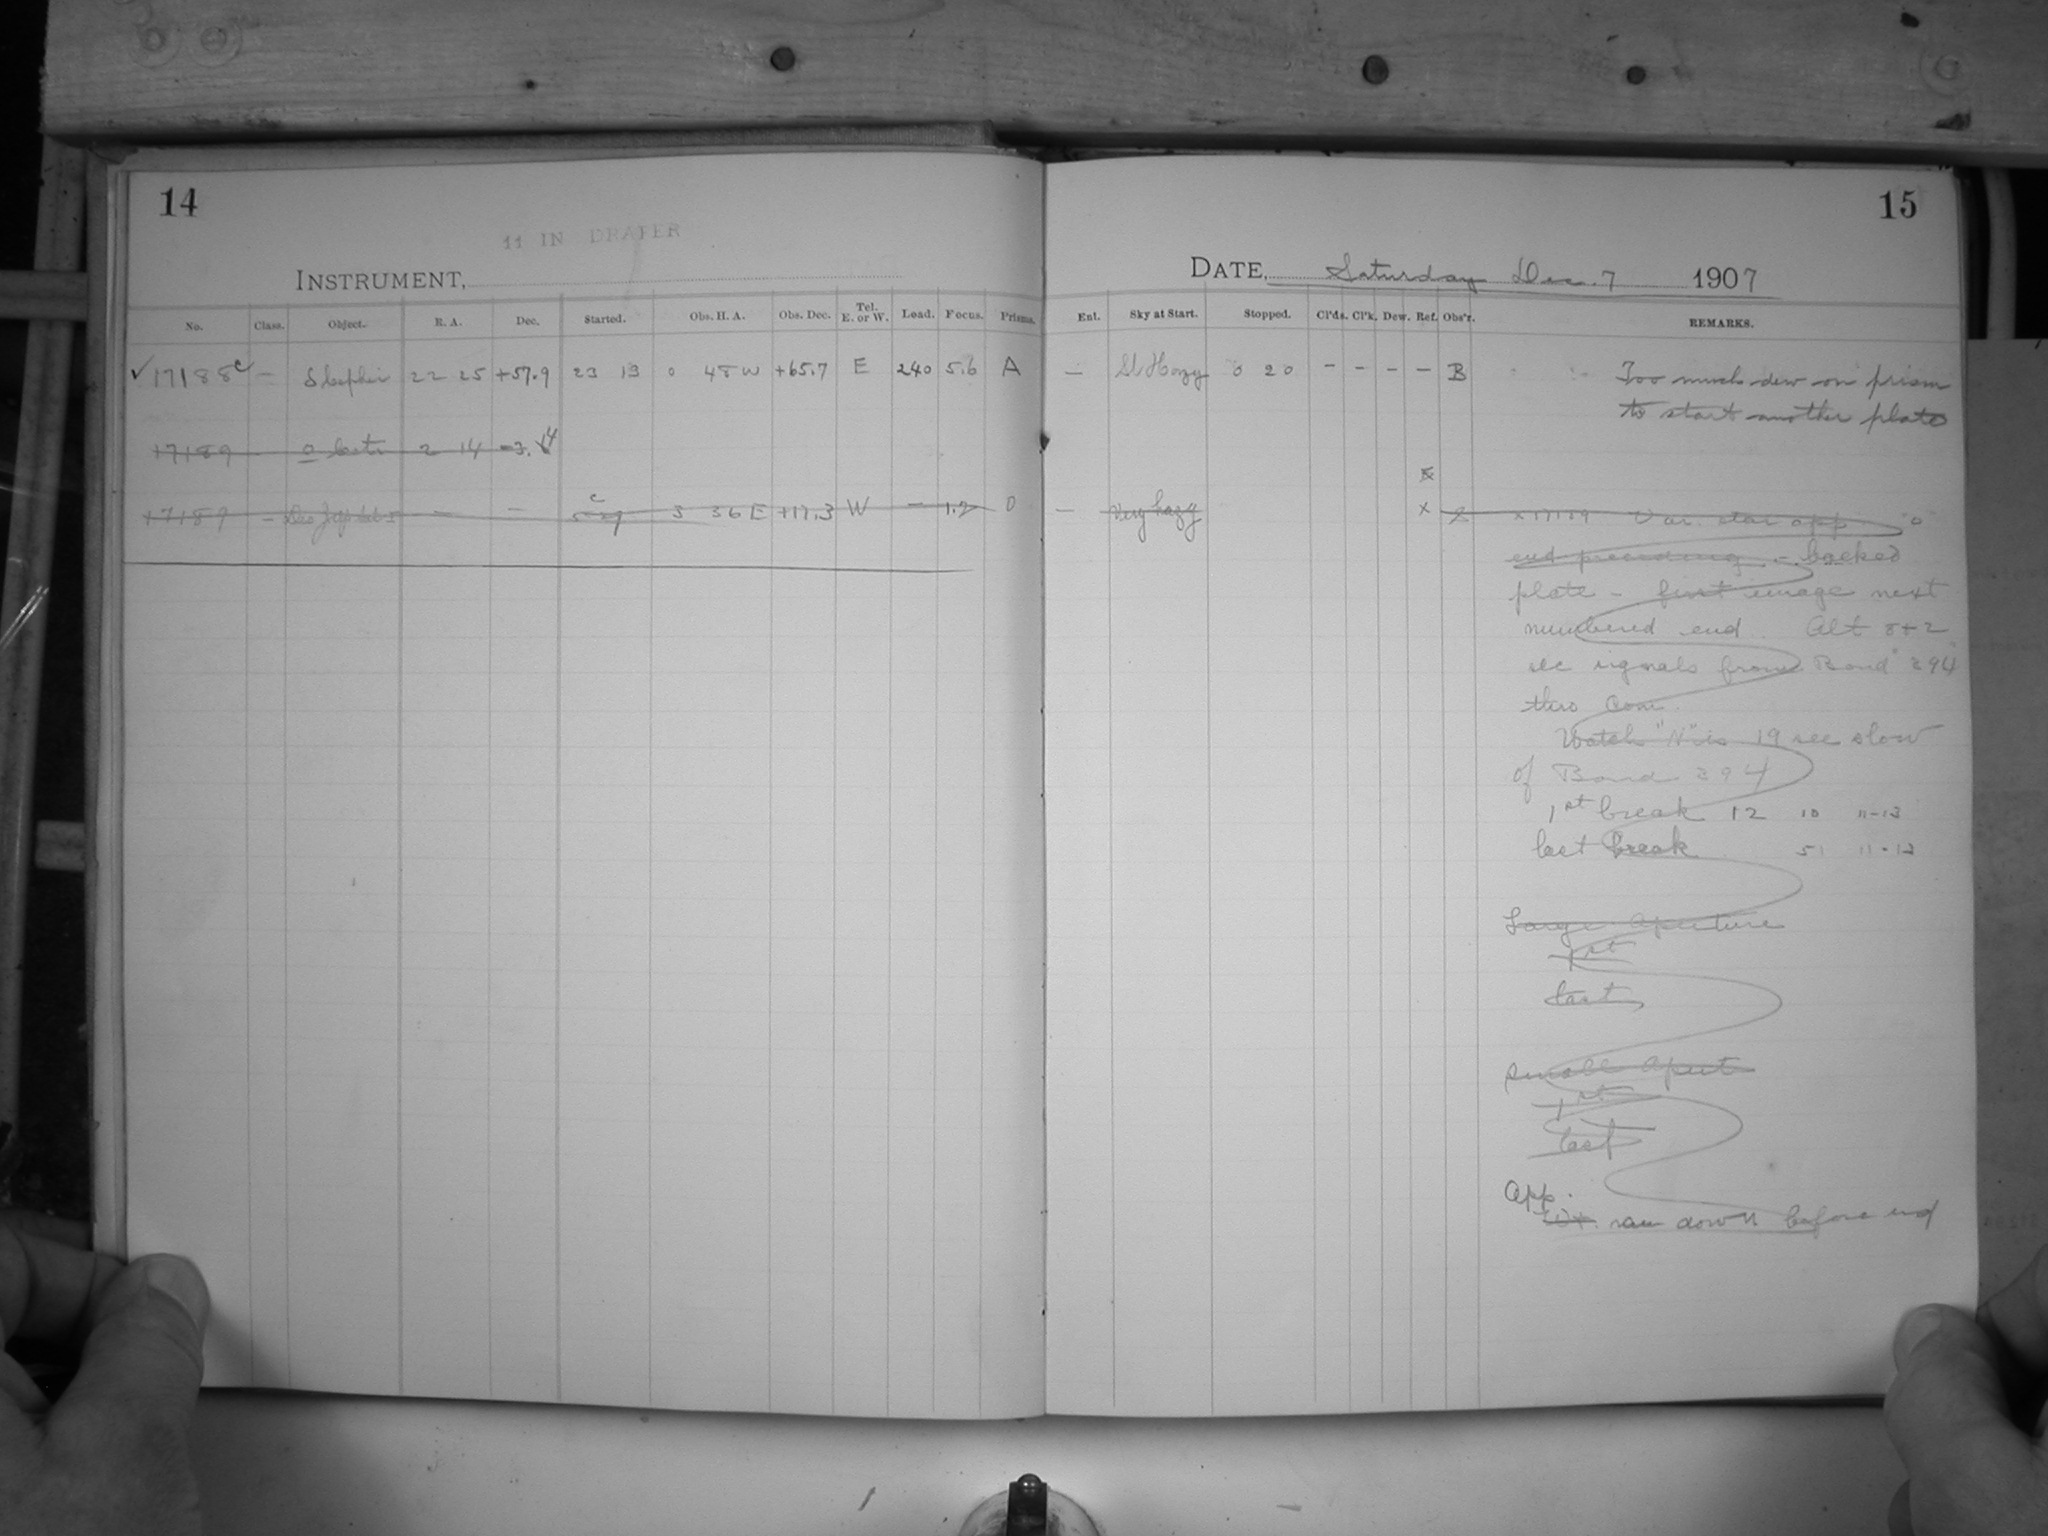 14
11 IN DRAPER
INSTRUMENT,
No. Class. Object. R. A. Dec. Started. Obs. H. A. Obs. Dec. Tel. E. or W. Load. Focus. Prisms.
✓ 17188 c — δ Cephei 22 25 +57.9 23 13 0 48 W +65.7 E 240 5.6 A
17189 o Ceti 2 14 -3.4
17189 — — — 3 36 E +17.3 W — 1.2 0
15
DATE, Saturday Dec. 7 1907
Ent. Sky at Start. Stopped. Cl'ds. Cl'k. Dew. Ref. Obs'r. REMARKS.
— Sl Hazy 0 20 – – – – B Too much dew on prism
to start another plate
— Very hazy x x 17189 Var. star app "0"
end preceding - backed
plate - first image next
numbered end. Alt 8 + 2
sec signals from Bond "394"
thro Com.
Watch "N" is 19 sec slow
of Bond 394
1st break 12 10 11-13
last break 51 11-13
Large Aperture
1st
last
Small Apert
1st
last
App.
ran down before end